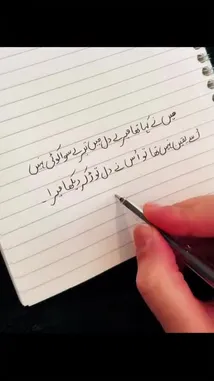 میں نے کہا تھا میرے دل میں تیرے سوا کوئی نہیں
اُسے یقیں نہیں تھا تو اُس نے دل توڑ کر دیکھا میرا